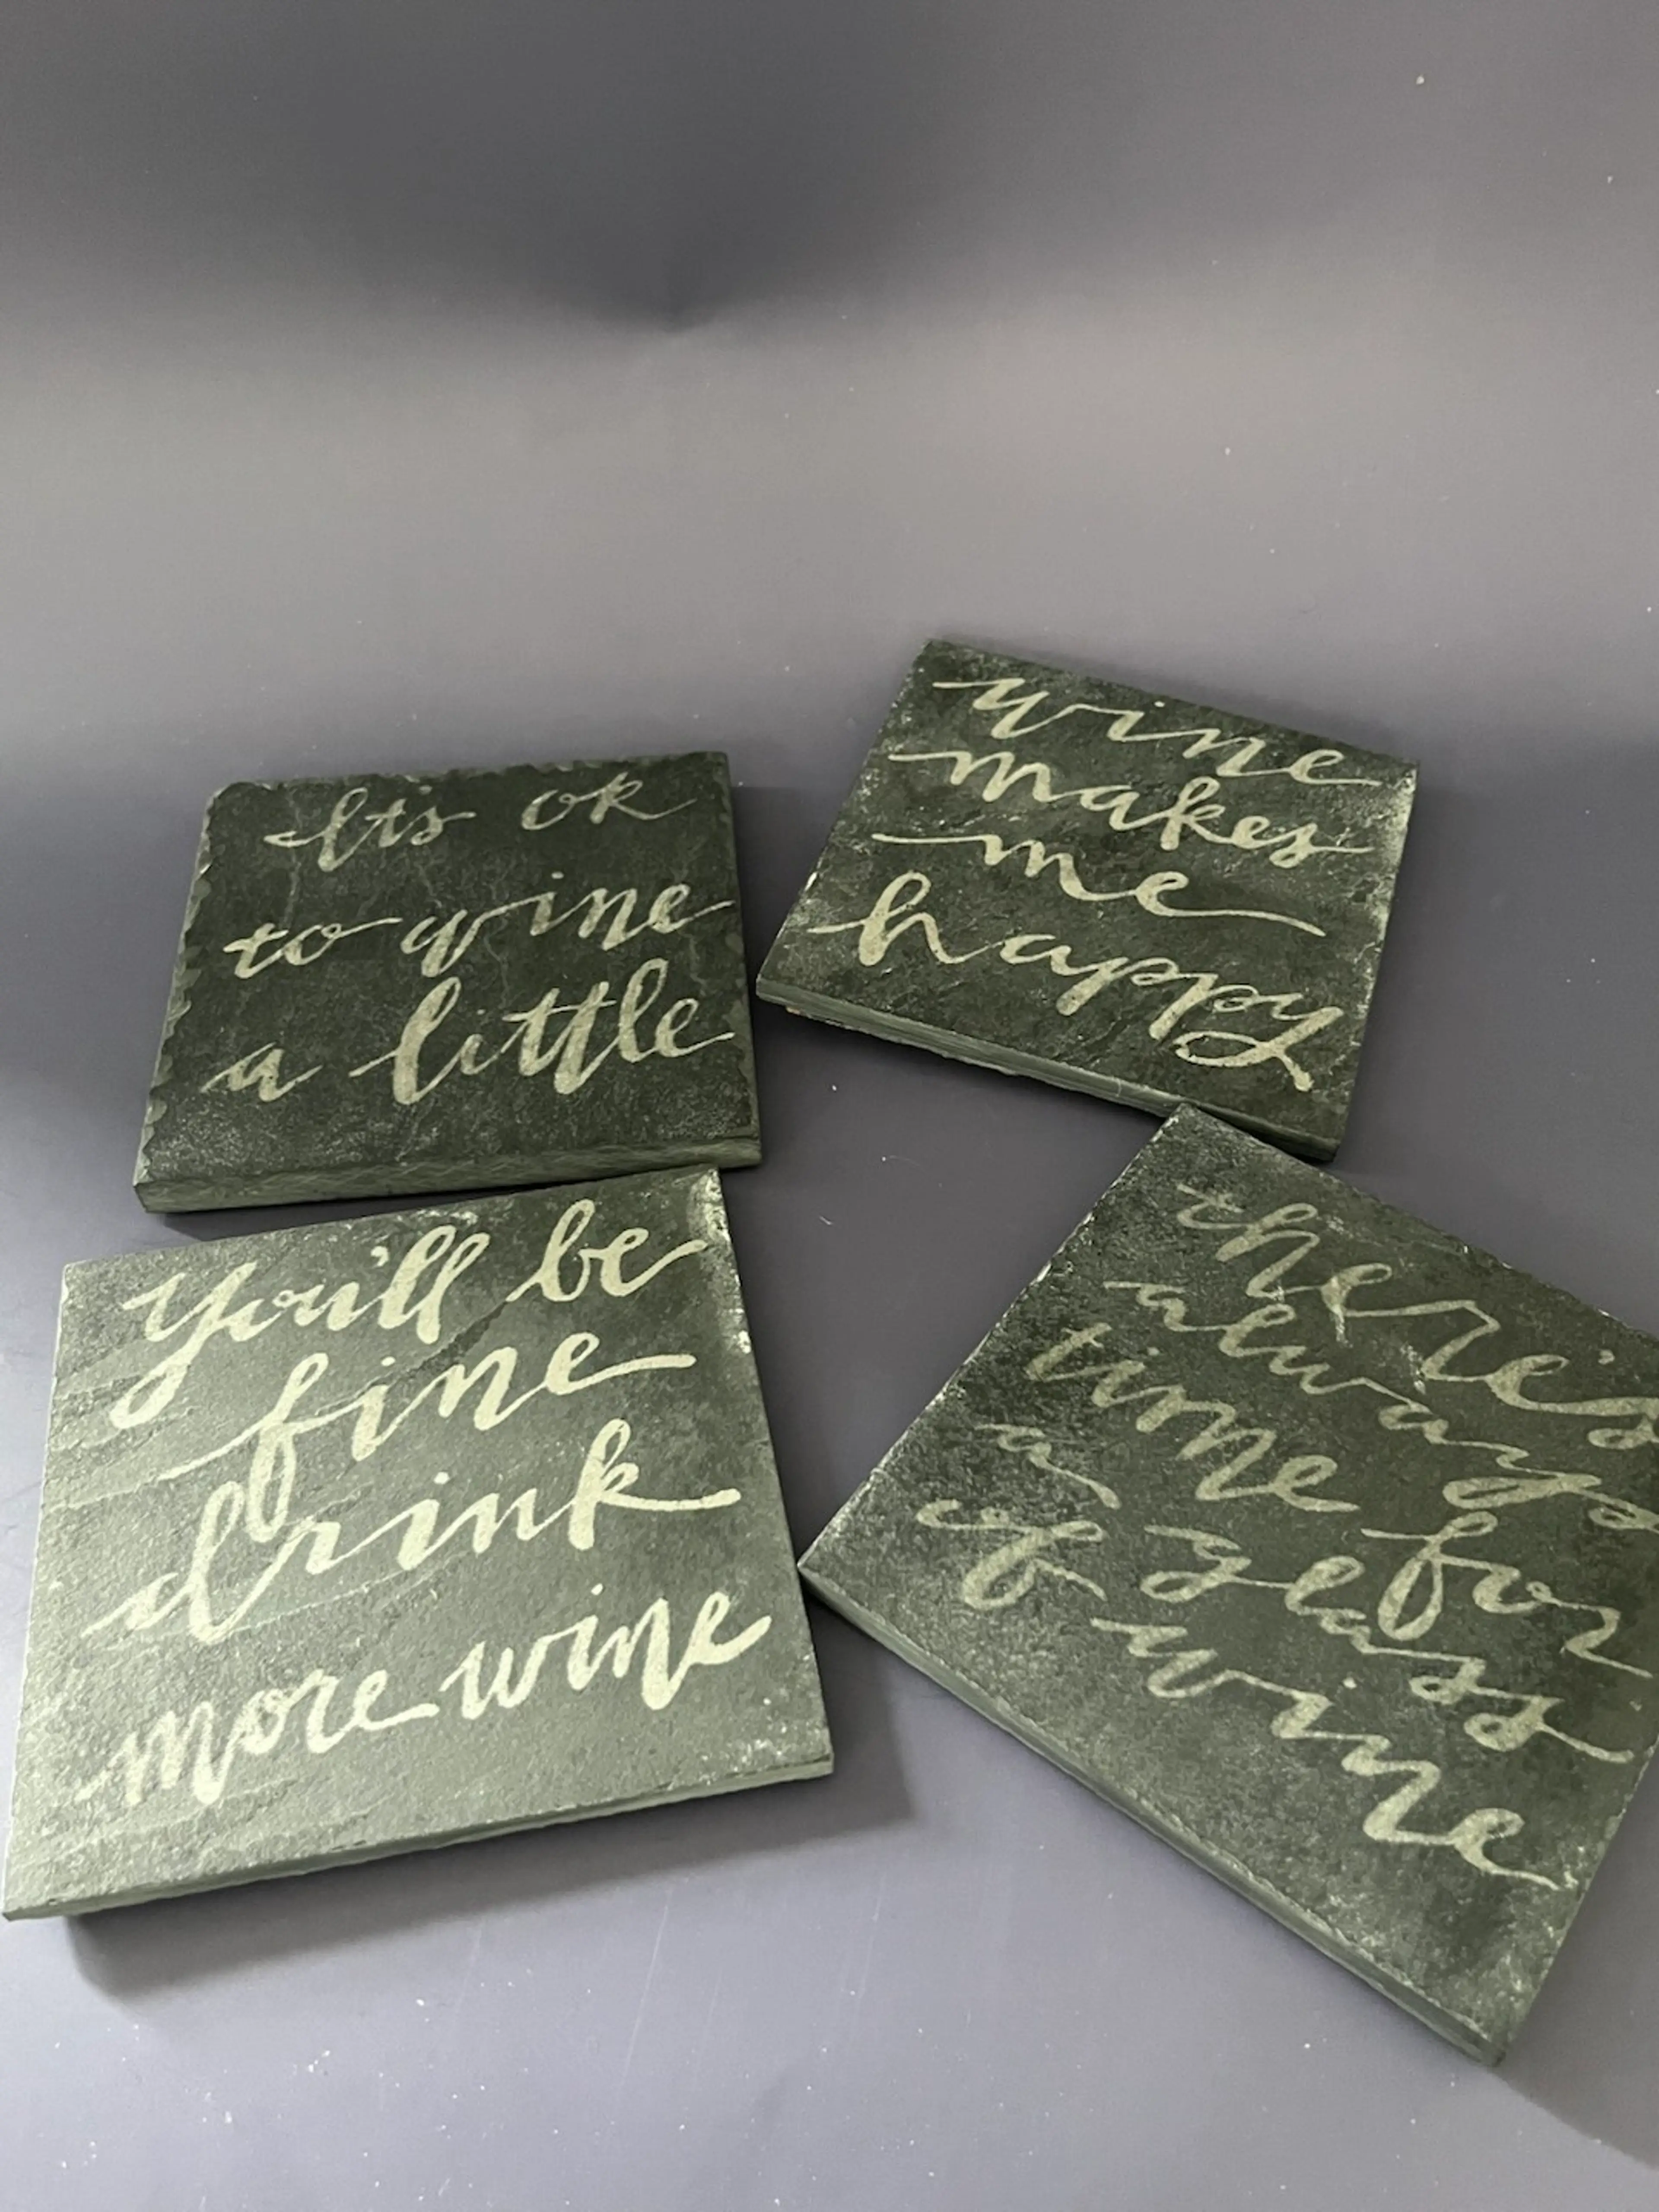 It's ok
to wine
a little
wine
makes
me
happy
You'll be
fine
drink
more wine
there's
always
time for
a glass
of wine